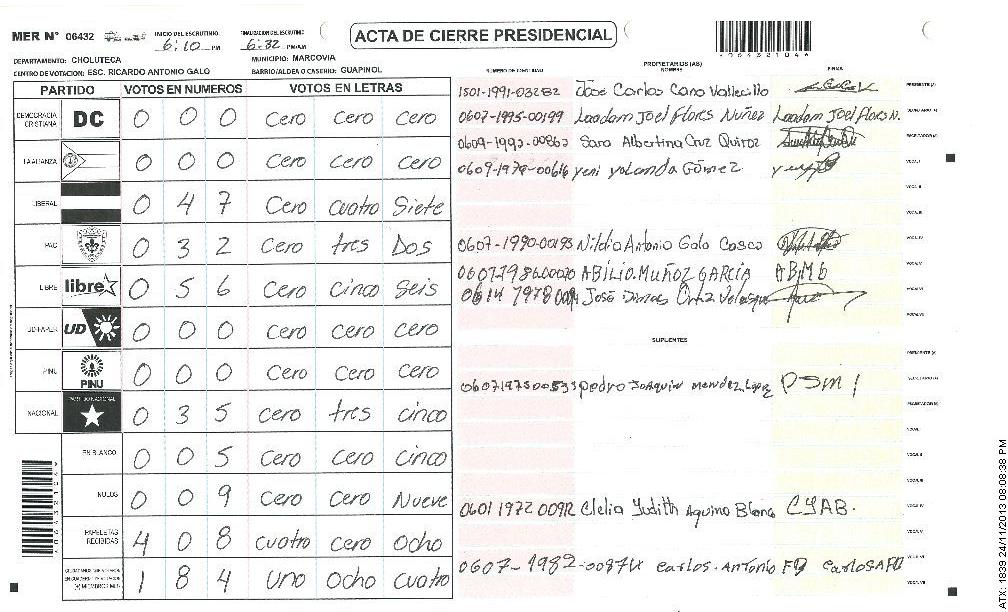 MER N° 06432
INICIO DEL ESCRUTINIO 6:10 PM
FINALIZACION DEL ESCRUTINIO 6:32 PM/AM
ACTA DE CIERRE PRESIDENCIAL
DEPARTAMENTO: CHOLUTECA MUNICIPIO: MARCOVIA
CENTRO DE VOTACION: ESC. RICARDO ANTONIO GALO BARRIO/ALDEA O CASERIO: GUAPINOL
PARTIDO VOTOS EN NUMEROS VOTOS EN LETRAS
DEMOCRACIA CRISTIANA DC 0 0 0 Cero Cero Cero
LA ALIANZA 0 0 0 Cero Cero Cero
LIBERAL 0 4 7 Cero Cuatro Siete
PAC 0 3 2 Cero tres Dos
LIBRE libre 0 5 6 Cero Cinco Seis
UD-FAPER UD 0 0 0 Cero Cero Cero
PINU PINU 0 0 0 Cero Cero Cero
NACIONAL PARTIDO NACIONAL 0 3 5 Cero tres cinco
EN BLANCO 0 0 5 Cero Cero Cinco
NULOS 0 0 9 Cero Cero Nueve
PAPELETAS RECIBIDAS 4 0 8 cuatro cero ocho
1 8 4 uno ocho cuatro
PROPIETARIOS (AS)
NUMERO DE IDENTIDAD NOMBRE FIRMA
1501-1991-03282 José Carlos Cano Vallecillo
0607-1995-00199 Joel Flores Nuñez Joel Flores N.
Sara Albertina Cruz Quiroz
yeni yolanda Gómez
0607-1990-00193 Antonio Galo Casco
ABILIO. MUÑOZ GARCIA ABMG
José Ortiz
SUPLENTES
0607197500533 pedro Joaquin mendez
Clelia Yudith Aquino CYAB.
0607-1982- carlos. Antonio
ATX: 1839 24/11/2013 08:08:38 PM